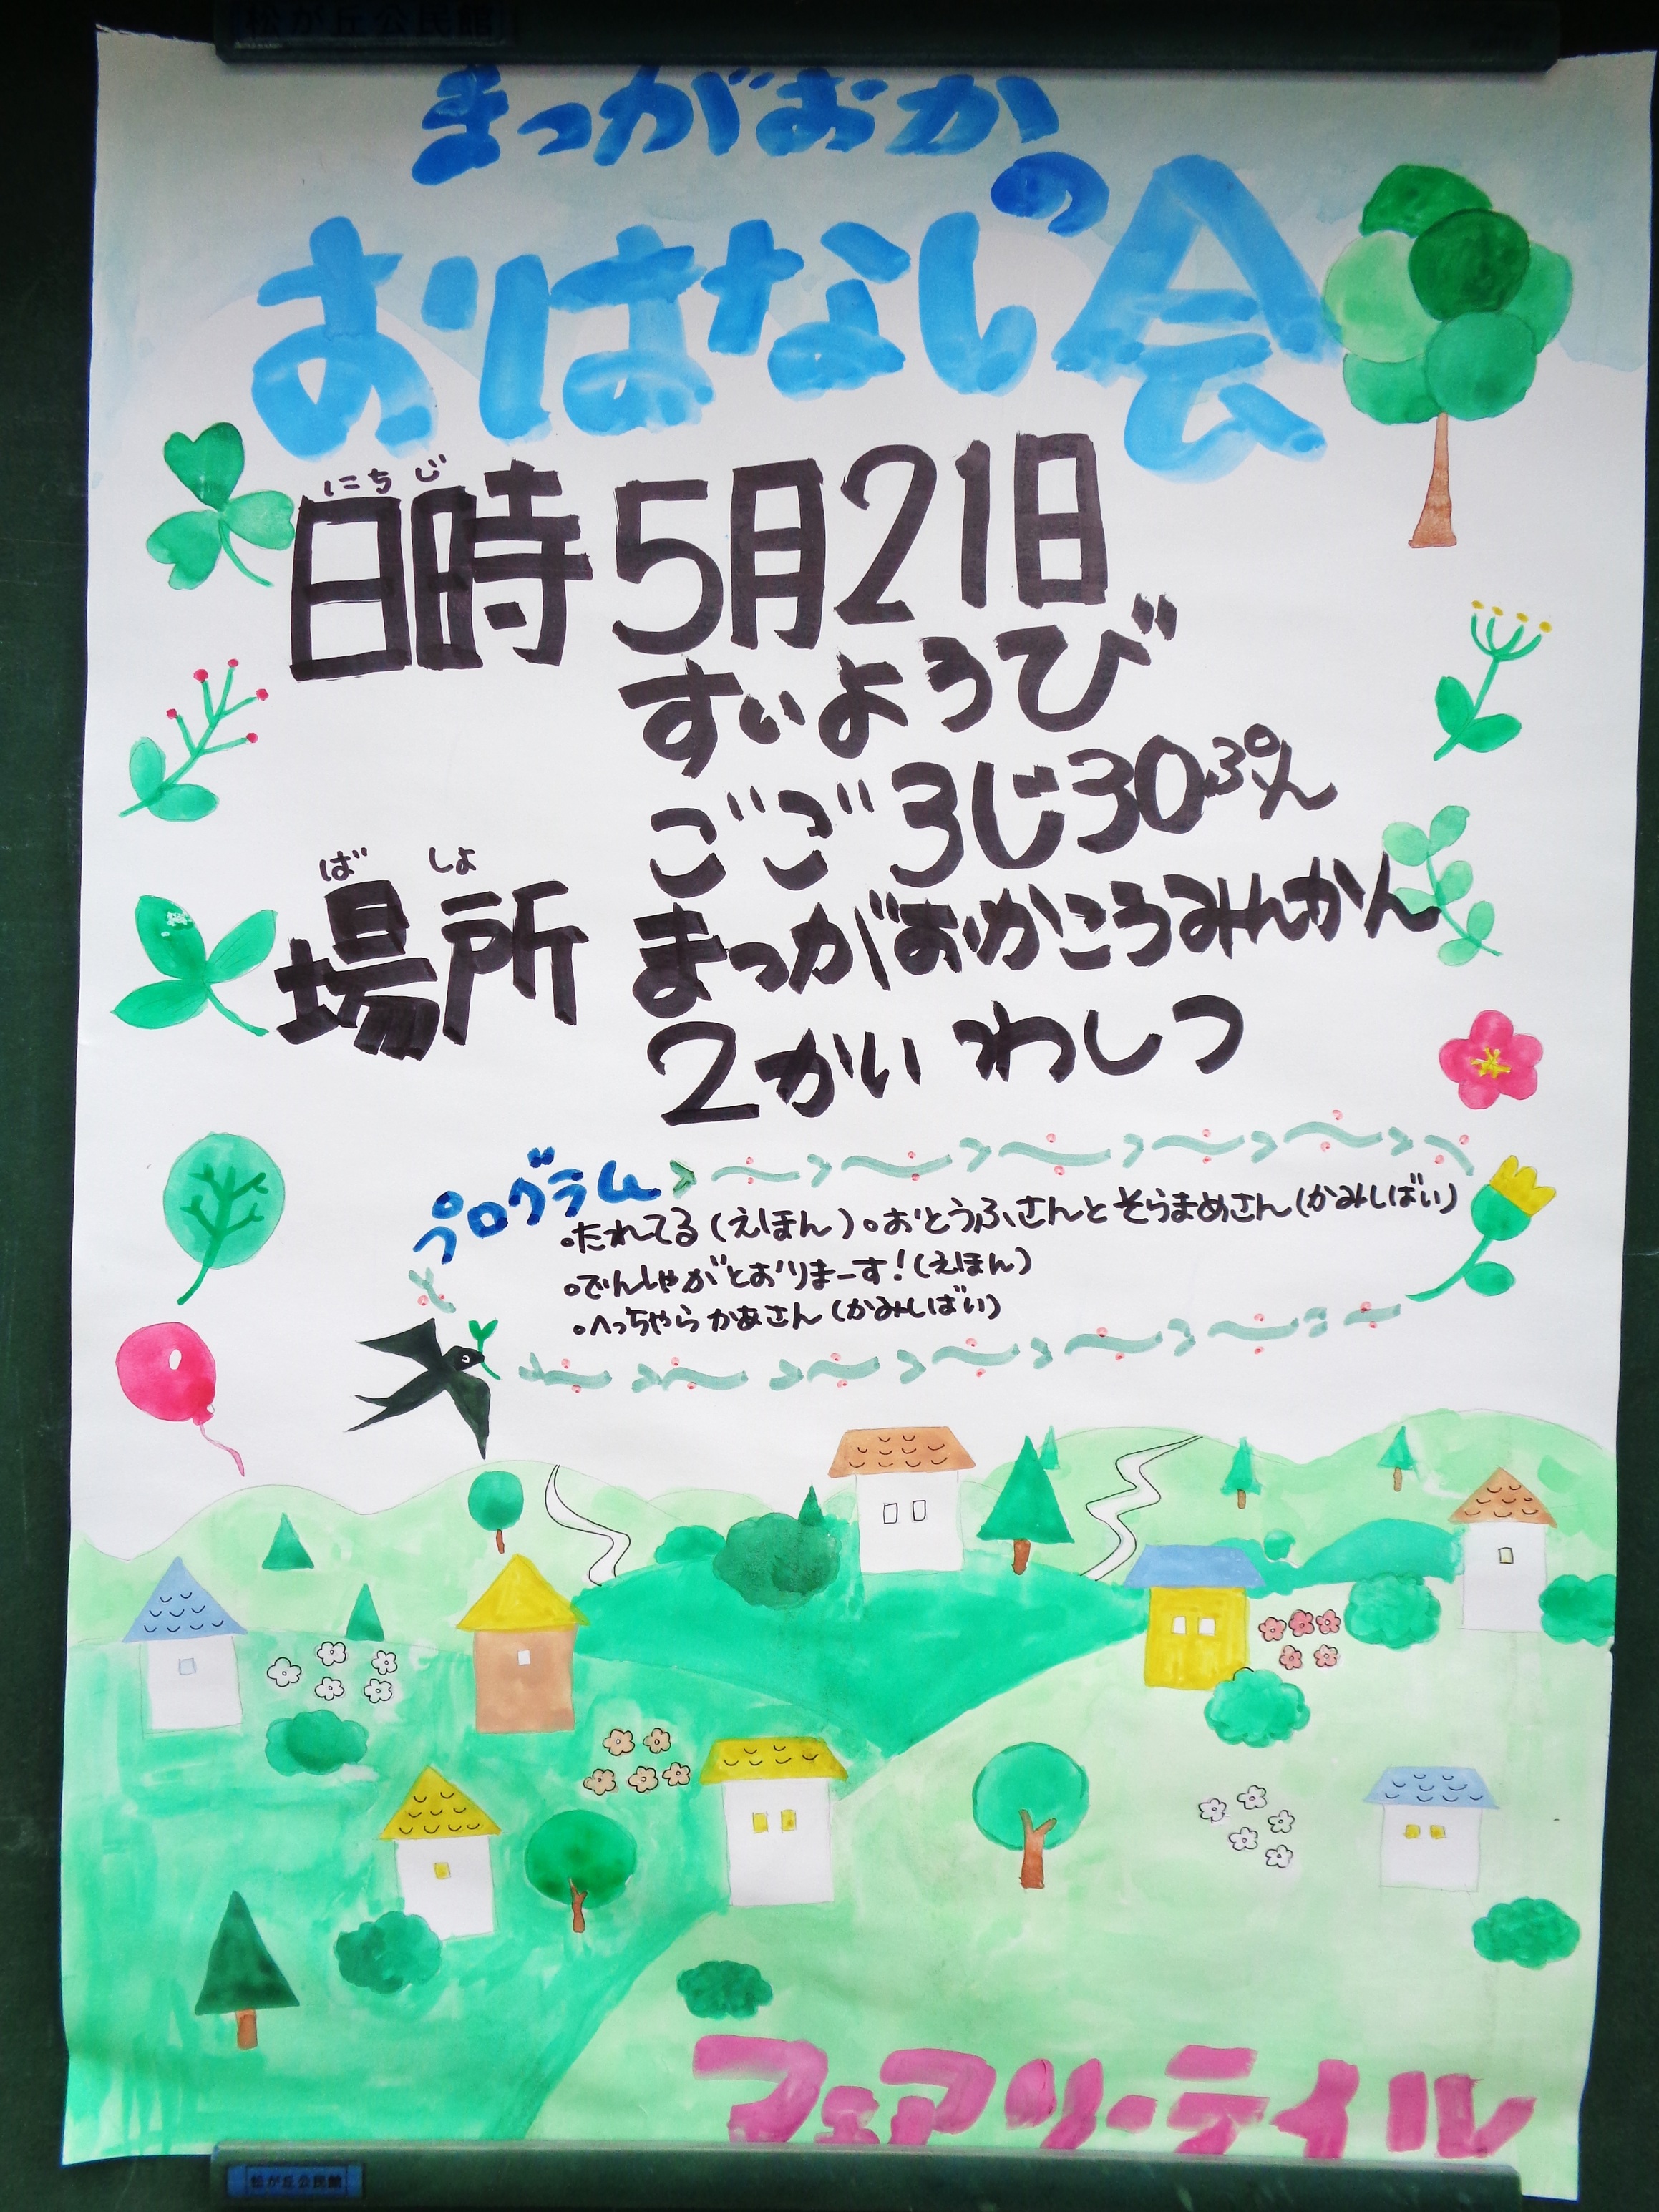 松が丘公民館
まつがおかの
おはなし会
にちじ
日時 5月21日
すいようび
ごご3じ30ぷん
ばしょ
場所 まつがおかこうみんかん
2かい わしつ
プログラム
。たれてる(えほん)。おとうふさんとそらまめさん(かみしばい)
。でんしゃがとおりまーす!(えほん)
。へっちゃらかあさん(かみしばい)
フェアリーテイル
松が丘公民館